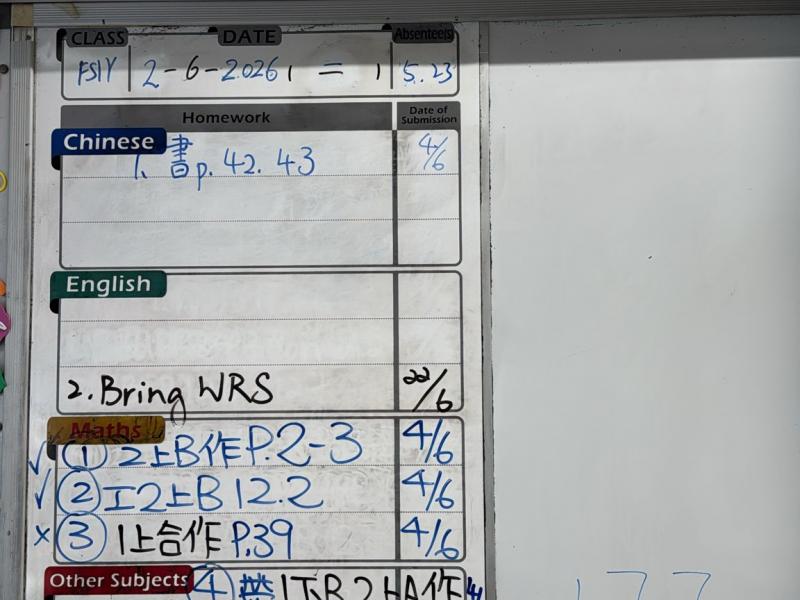 CLASS DATE Absentee(s)
2-6-2026 (二) 5.23
Homework Date of Submission
Chinese
1. 書p.42.43 4/6
English
2. Bring WRS 22/6
Maths
✓ ① 2上B作P.2-3 4/6
✓ ② 工2上B 12.2 4/6
× ③ 1上合作P.39 4/6
Other Subjects ④ 1下B2上A作